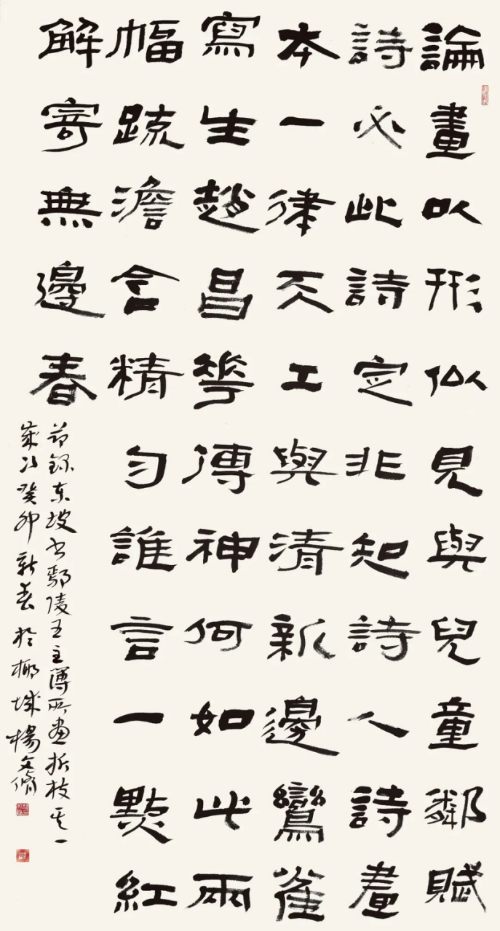 論畫以形似見與兒童鄰賦
詩必此詩定非知詩人詩畫
本一律天工與清新邊鸞雀
寫生趙昌花傳神何如此兩
幅疏澹含精勻誰言一點紅
解寄無邊春
節錄東坡书鄢陵王主簿所畫折枝其一
歲次癸卯新春於椰城楊文